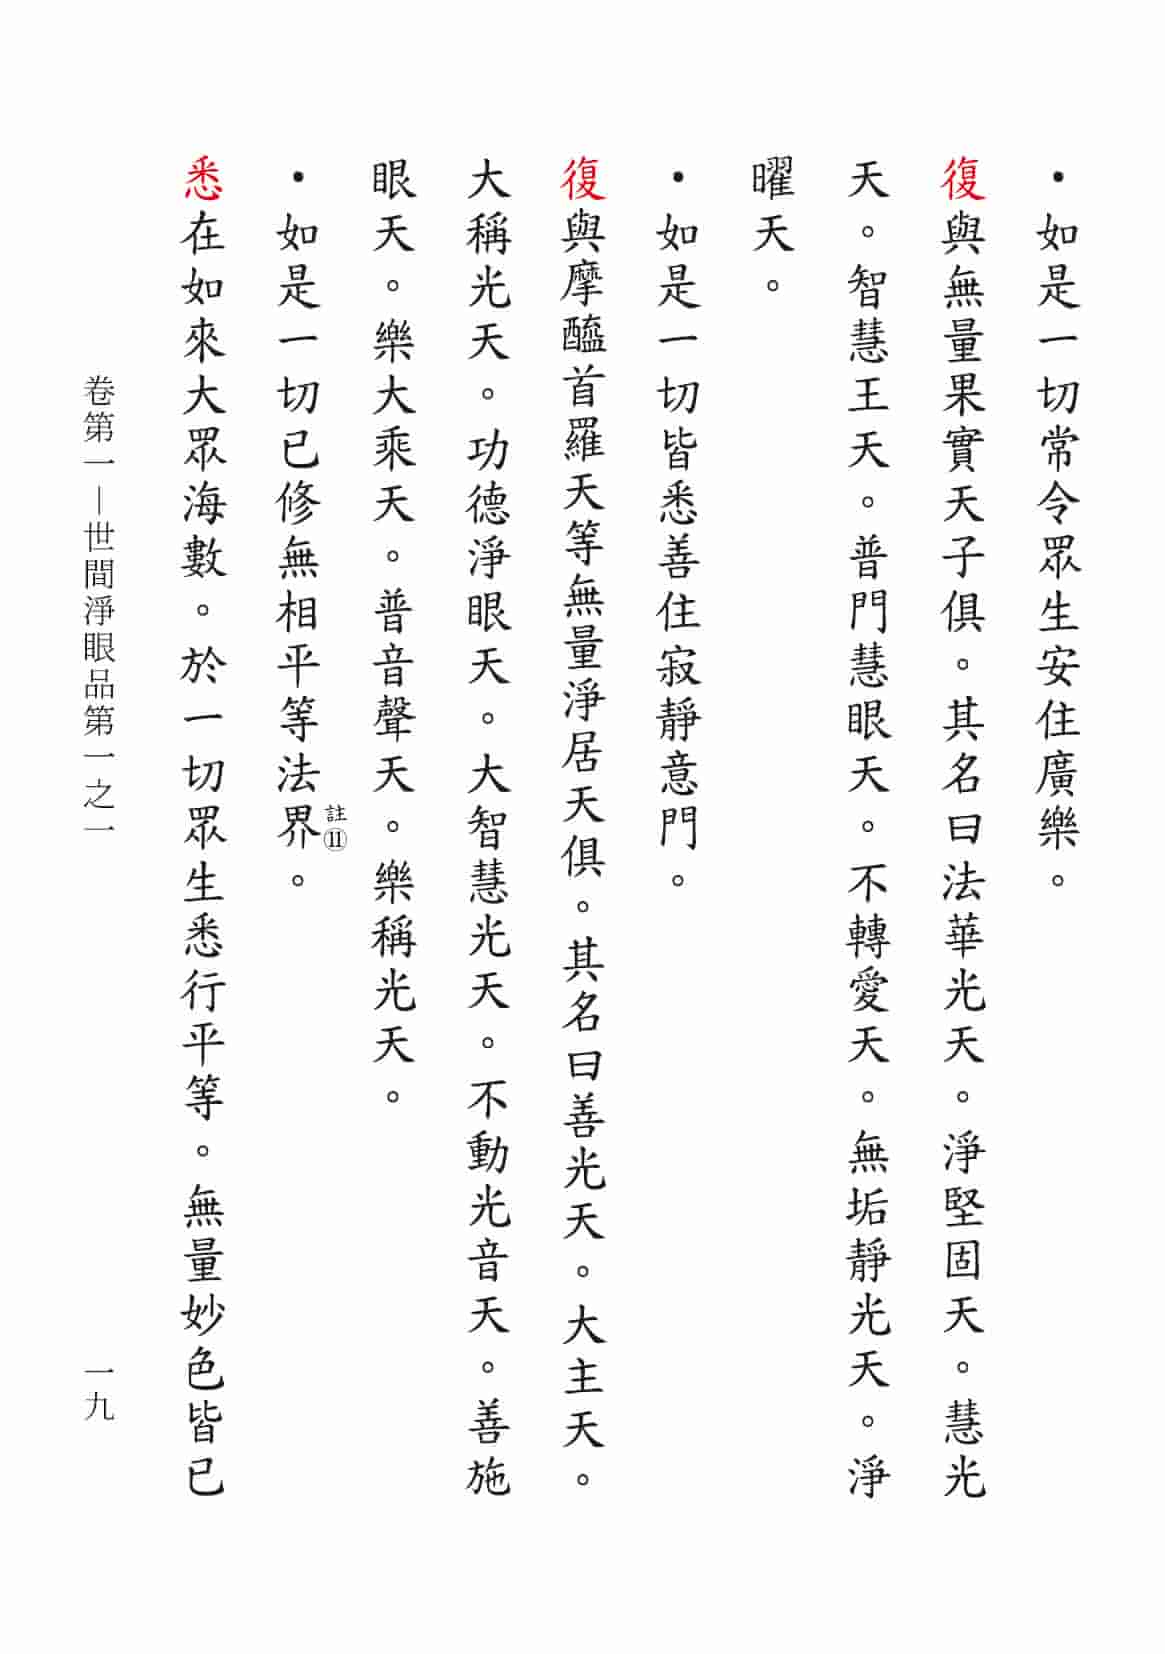 •如是一切常令眾生安住廣樂。
復與無量果實天子俱。其名曰法華光天。淨堅固天。慧光
天。智慧王天。普門慧眼天。不轉愛天。無垢靜光天。淨
曜天。
•如是一切皆悉善住寂靜意門。
復與摩醯首羅天等無量淨居天俱。其名曰善光天。大主天。
大稱光天。功德淨眼天。大智慧光天。不動光音天。善施
眼天。樂大乘天。普音聲天。樂稱光天。
•如是一切已修無相平等法界註⑪。
悉在如來大眾海數。於一切眾生悉行平等。無量妙色皆已
卷第一—世間淨眼品第一之一
一九